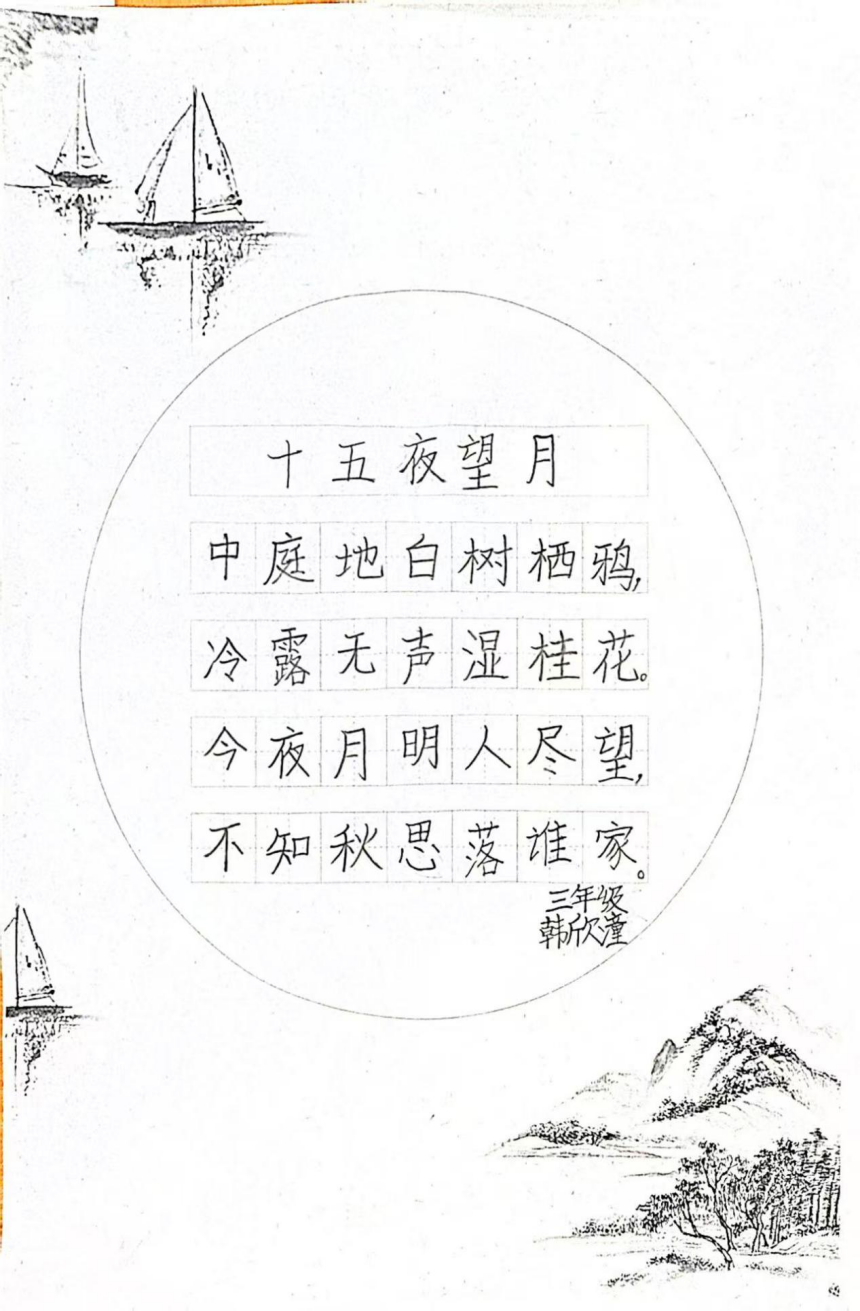 十五夜望月
中庭地白树栖鸦,
冷露无声湿桂花。
今夜月明人尽望,
不知秋思落谁家。
三年级
韩欣潼